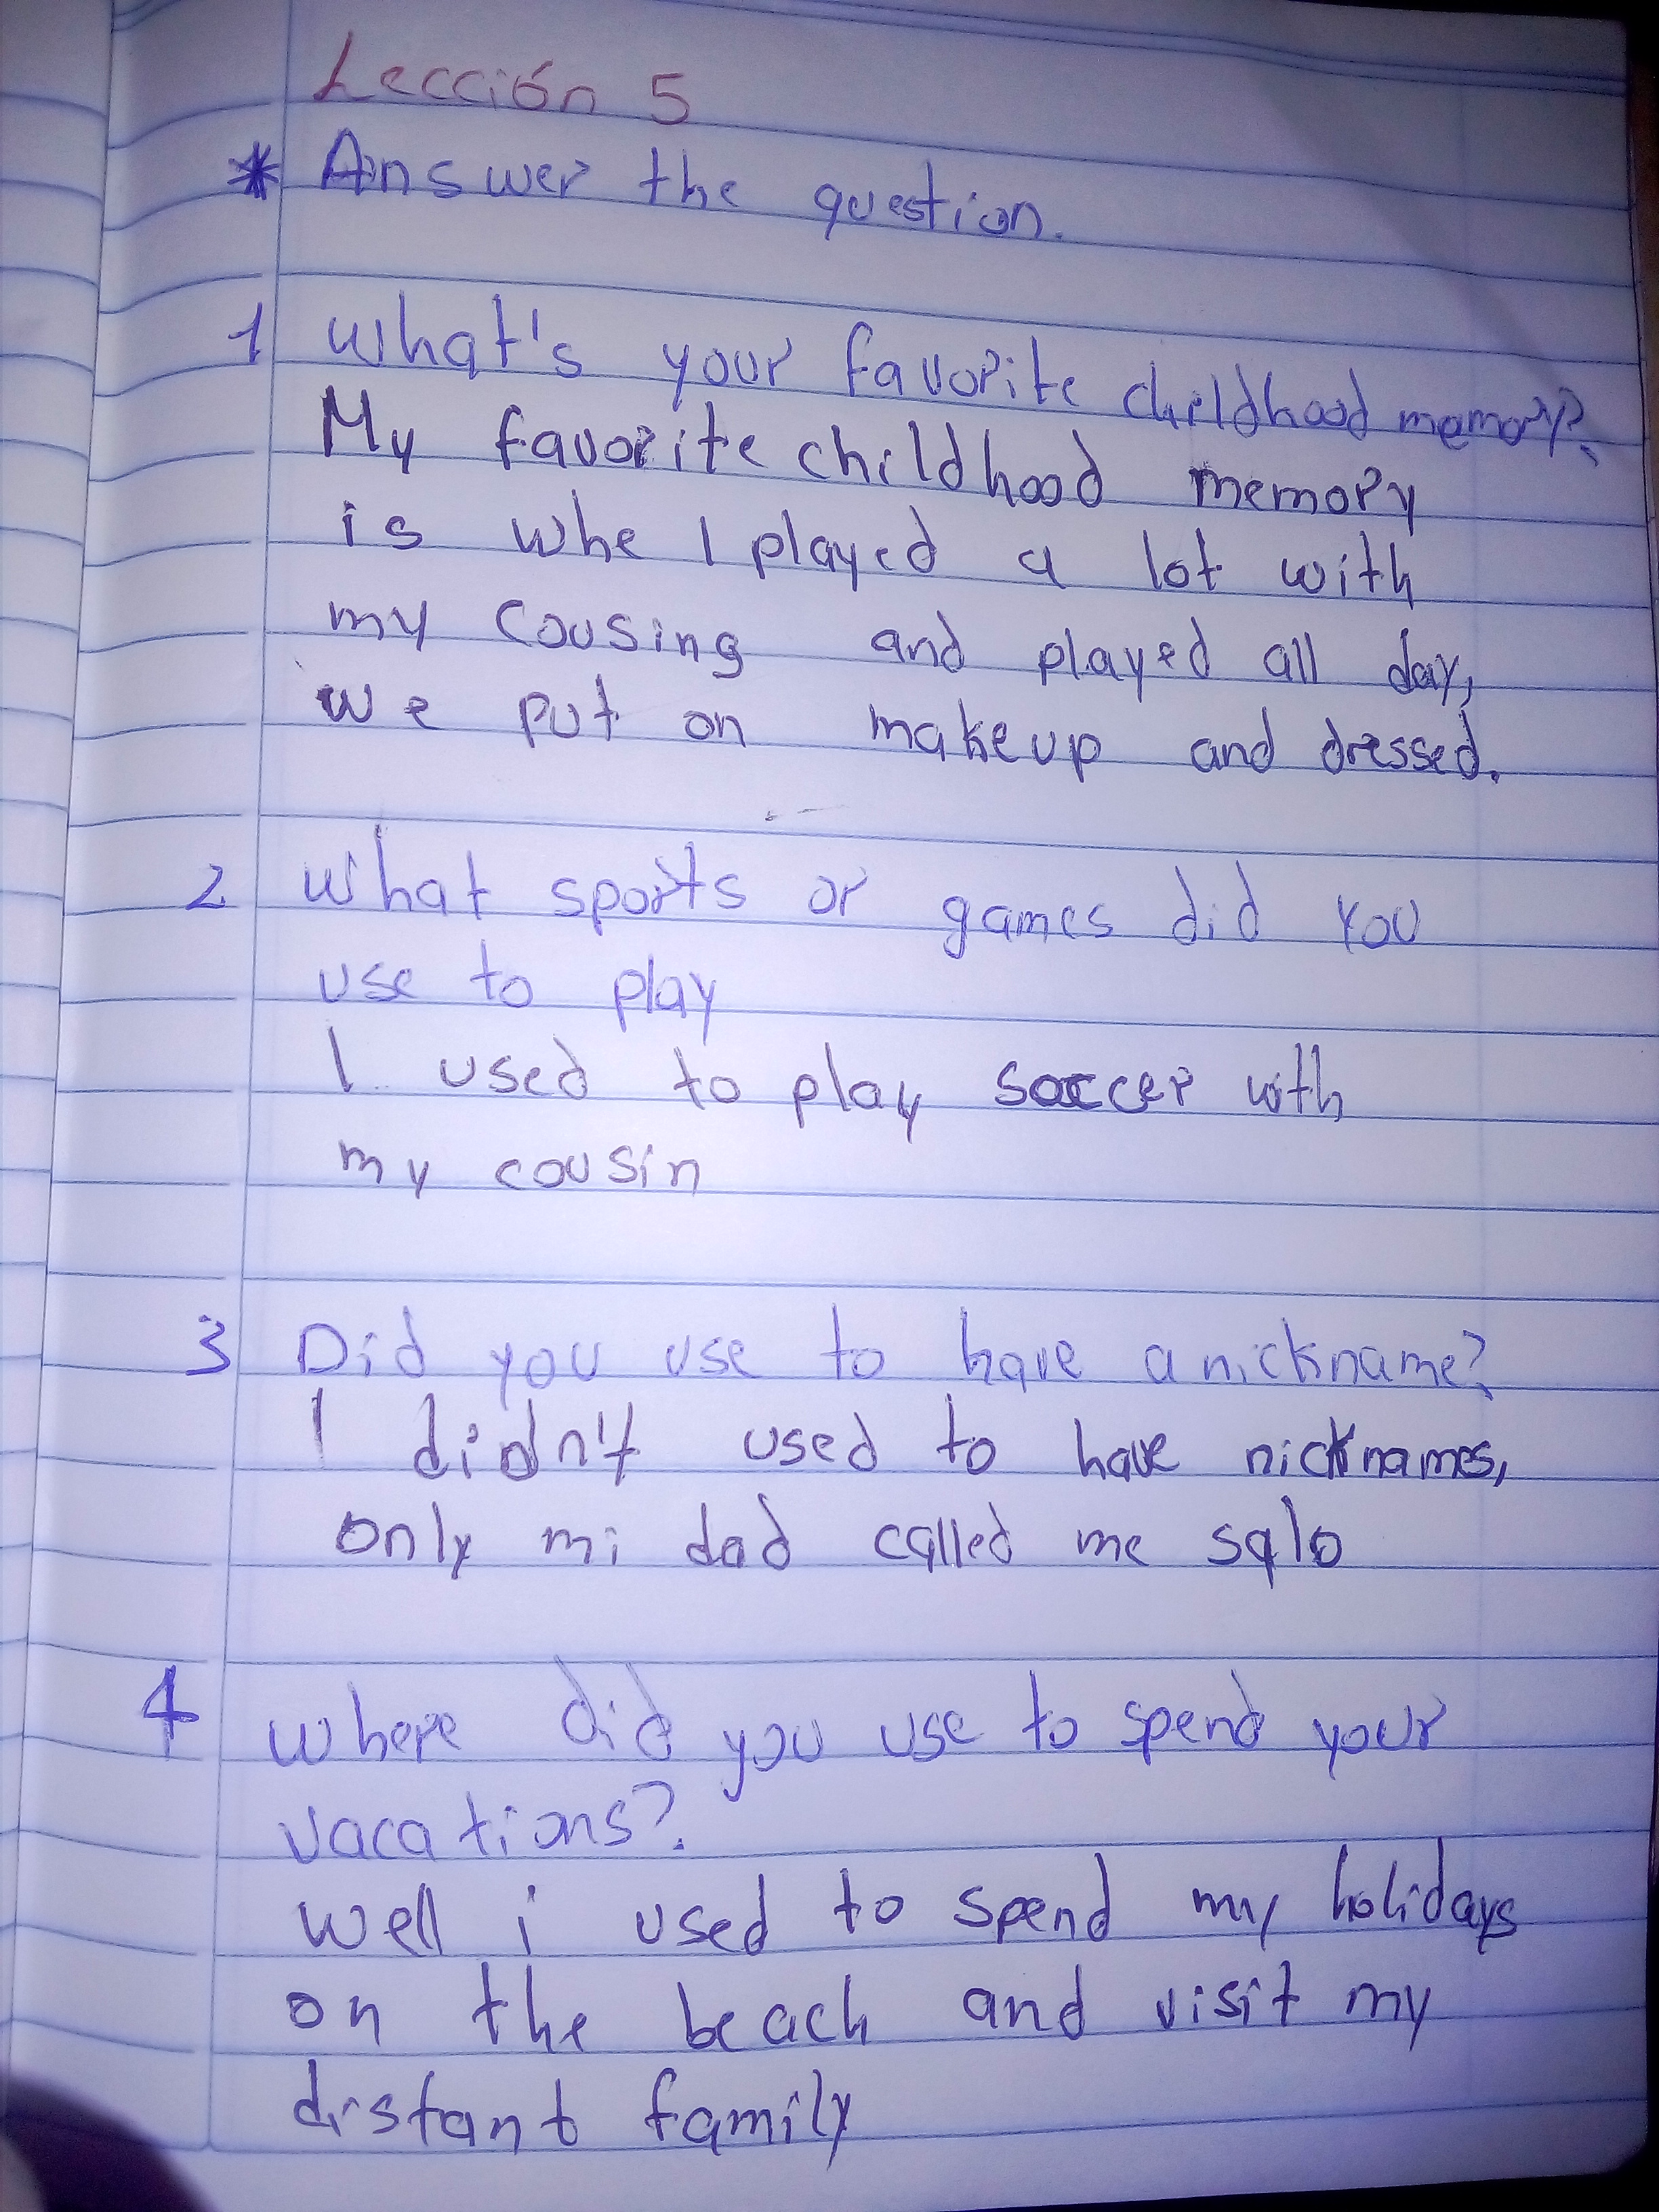 Lección 5
* Answer the question.
1 What's your favorite childhood memory?
My favorite childhood memory
is whe I played a lot with
my cousing and played all day,
we put on makeup and dressed.
2 What sports or games did you
use to play
I used to play soccer with
my cousin
3 Did you use to have a nickname?
I didn't used to have nicknames,
only mi dad called me salo
4 where did you use to spend your
vacations?
well i used to spend my holidays
on the beach and visit my
distant family